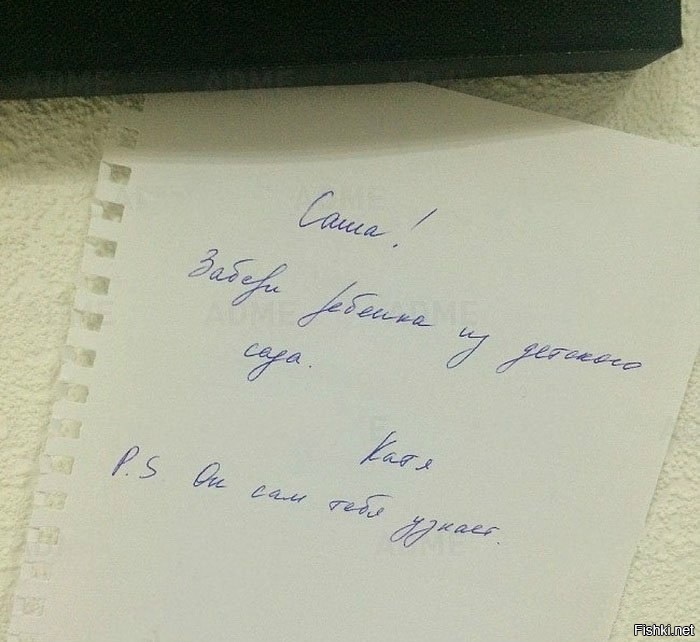 Саша!
Забери ребенка из детского
сада.
Катя
P.S. Он сам тебя узнает.
ADME
Fishki.net